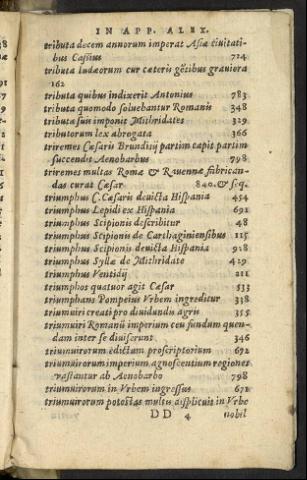 IN APP. ALEX.
tributa decem annorum imperat Asiæ ciuitati-
bus Cassius 724
tributa Iudæorum cur cæteris gẽtibus grauiora
162
tributa quibus indixerit Antonius 783
tributa quomodo soluebantur Romanis 348
tributa suis imponit Mithridates 329
tributorum lex abrogata 366
triremes Cæsaris Brundisij partim capit partim
succendit Aenobarbus 798
triremes multas Romæ & Rauennæ fabrican-
das curat Cæsar 840. & seq.
triumphus C. Cæsaris deuicta Hispania 454
triumphus Lepidi ex Hispania 691
triumphus Scipionis describitur 48
triumphus Scipionis de Carthaginiensibus 115
triumphus Scipionis deuicta Hispania 918
triumphus Syllæ de Mithridate 429
triumphus Ventidij 211
triumphos quatuor agit Cæsar 533
triumphans Pompeius Vrbem ingreditur 338
triumuiri creati pro diuidundis agris 355
triumuiri Romanũ imperium ceu fundum quen-
dam inter se diuiserunt 346
triumuirorum edictum proscriptorium 672
triumuirorum imperium agnoscentium regiones
vastantur ab Aenobarbo 798
triumuirorum in Vrbem ingressus 671
triumuirorum potẽstas multis displicuit in Vrbe
DD 4 nobil